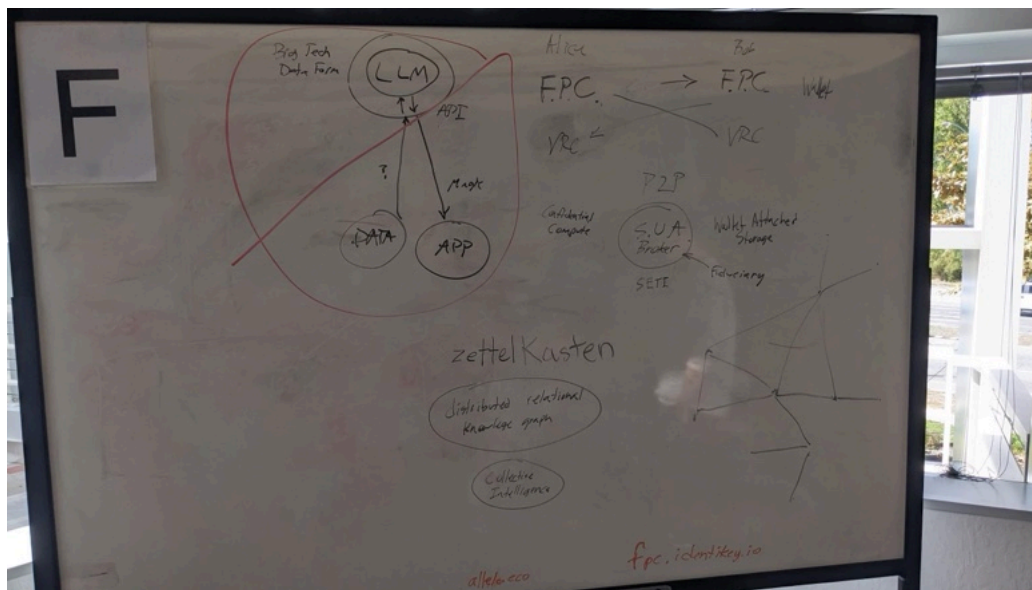 F
Big Tech
Data Farm
LLM
API
?
Magic
DATA
APP
Alice
Bob
F.P.C.
F.P.C.
Wallet
VRC
VRC
P2P
Confidential
Compute
S.U.A.
Broker
Wallet Attached
Storage
SETI
Fiduciary
zettelKasten
distributed relational
Knowledge graph
Collective
Intelligence
fpc.identikey.io